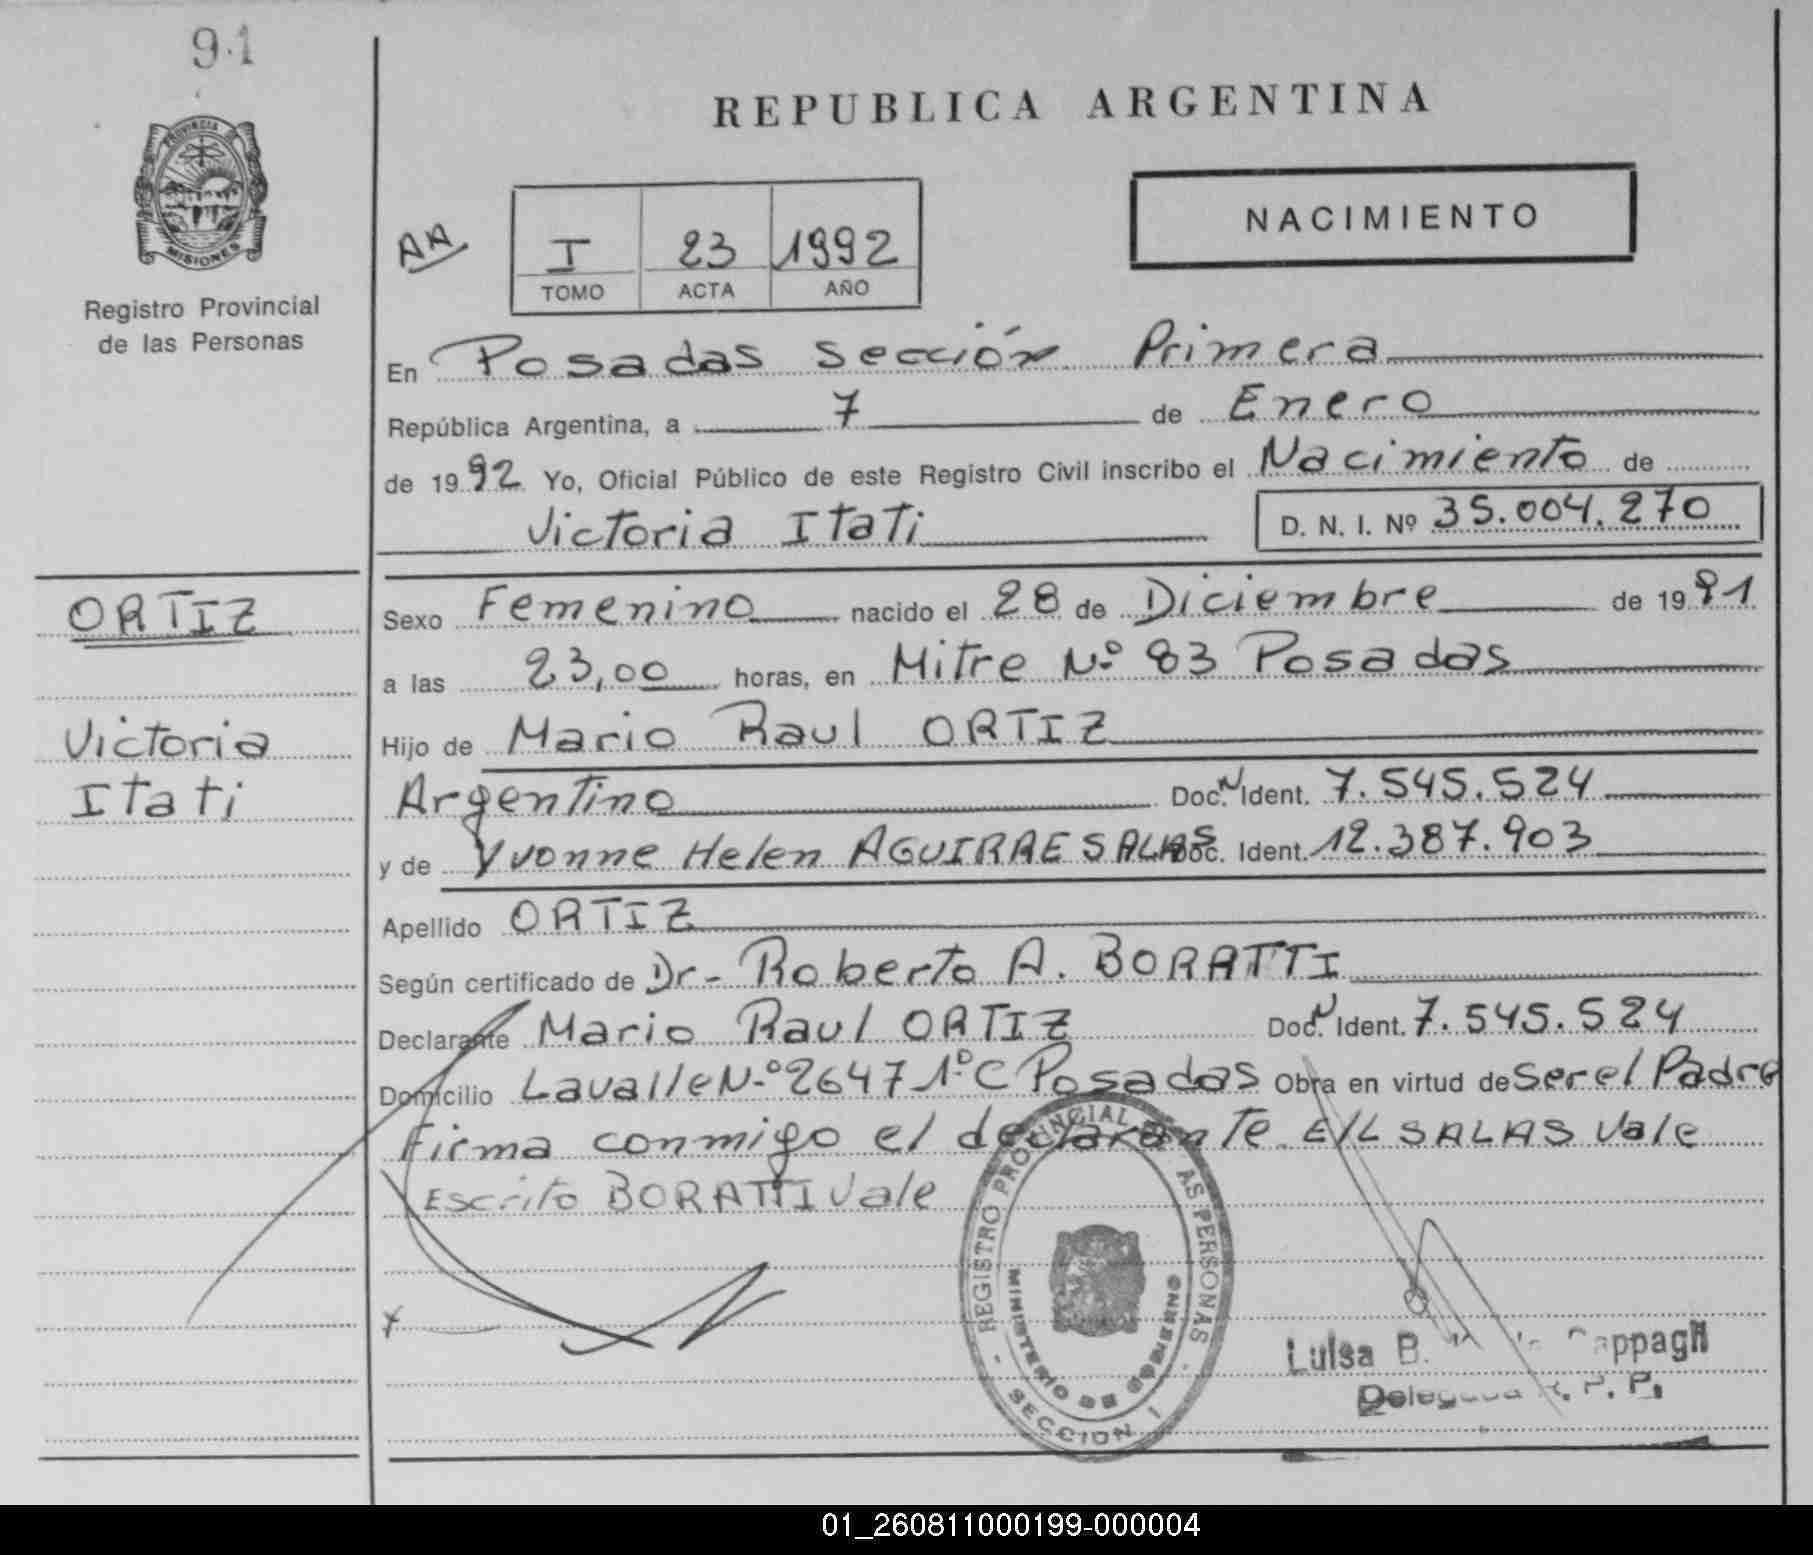 91
REPUBLICA ARGENTINA
PROVINCIA
MISIONES
Registro Provincial
de las Personas
AA
I 23 1992
TOMO ACTA AÑO
NACIMIENTO
En Posadas Sección Primera
República Argentina, a 7 de Enero
de 1992 Yo, Oficial Público de este Registro Civil inscribo el Nacimiento de
Victoria Itati D. N. I. Nº 35.004.270
ORTIZ
Victoria
Itati
Sexo Femenino nacido el 28 de Diciembre de 1991
a las 23,00 horas, en Mitre Nº 83 Posadas
Hijo de Mario Raul ORTIZ
Argentino Doc. N Ident. 7.545.524
y de Yvonne Helen AGUIRRE SALAS Doc. Ident. 12.387.903
Apellido ORTIZ
Según certificado de Dr- Roberto A. BORATTI
Declarante Mario Raul ORTIZ Doc. N Ident. 7.545.524
Domicilio Lavalle N-º 2647 1º C Posadas Obra en virtud de Ser el Padre
Firma conmigo el declarante E/L SALAS Vale
Escrito BORATTI Vale
REGISTRO PROVINCIAL AS PERSONAS
MINISTERIO DE GOBIERNO
SECCION 1
Luisa B.
R. P. P.
01_260811000199-000004